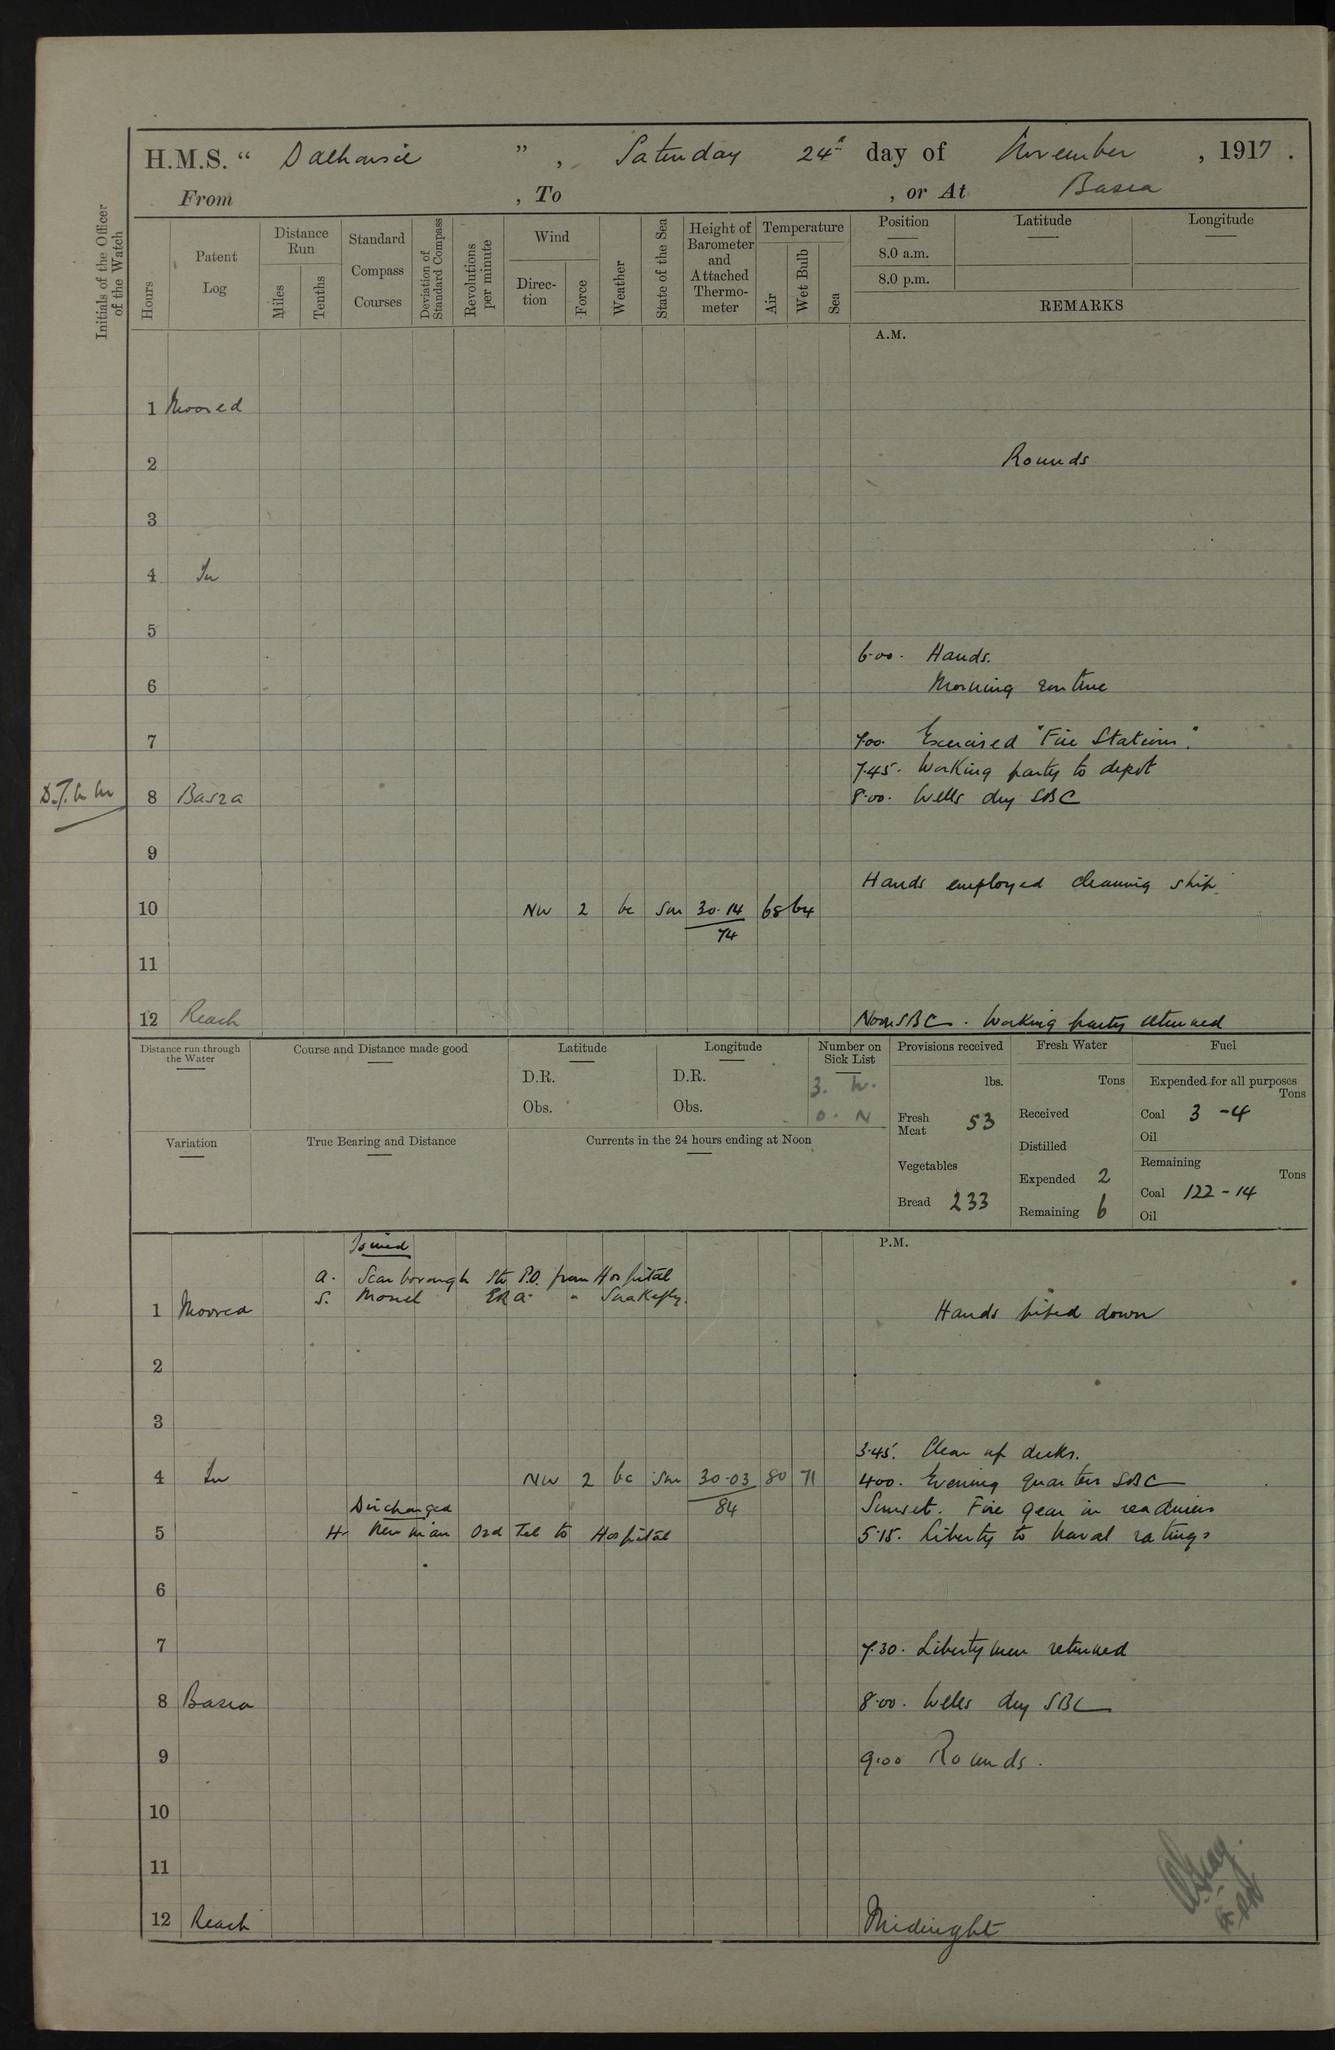 H.M.S. " Dalhousie ", Saturday 24th day of November, 1917.
From , To , or At Basra
Initials of the Officer of the Watch
Hours
Patent Log
Distance Run
Miles
Tenths
Standard Compass Courses
Deviation of Standard Compass
Revolutions per minute
Wind
Direction
Force
Weather
State of the Sea
Height of Barometer and Attached Thermometer
Temperature
Air
Wet Bulb
Sea
Position
Latitude
Longitude
8.0 a.m.
8.0 p.m.
REMARKS
A.M.
1 Moored
2 Rounds
3
4 In
5
6.00. Hands.
6 Morning routine
7 7.00. Exercised "Fire Stations".
7.45. Working party to depot
8 Basra 8.00. Wells dry SBC
9
Hands employed cleaning ship.
10 NW 2 bc Sm 30.14 68 64
74
11
12 Reach Noon SBC. Working party returned
Distance run through the Water
Course and Distance made good
Latitude
D.R.
Obs.
Longitude
D.R.
Obs.
Number on Sick List
3. W.
0. N
Provisions received
lbs.
Fresh Meat 53
Vegetables
Bread 233
Fresh Water
Tons
Received
Distilled
Expended 2
Remaining 6
Fuel
Expended for all purposes
Tons
Coal 3 - 4
Oil
Remaining
Tons
Coal 122 - 14
Oil
Variation
True Bearing and Distance
Currents in the 24 hours ending at Noon
P.M.
Joined
A. Scarborough Sto P.O. from Hospital
S. ERA " Snakefly.
1 Moored Hands piped down
2
3
3.45. Clear up decks.
4 In NW 2 bc Sm 30.03 80 71 4.00. Evening quarters SBC
84
Discharged Sunset. Fire gear in readiness
5 H. Newman Ord Tel to Hospital 5.15. Liberty to Naval ratings
6
7 7.30. Libertymen returned
8 Basra 8.00. Wells dry SBC
9 9.00 Rounds.
10
11
12 Reach Midnight